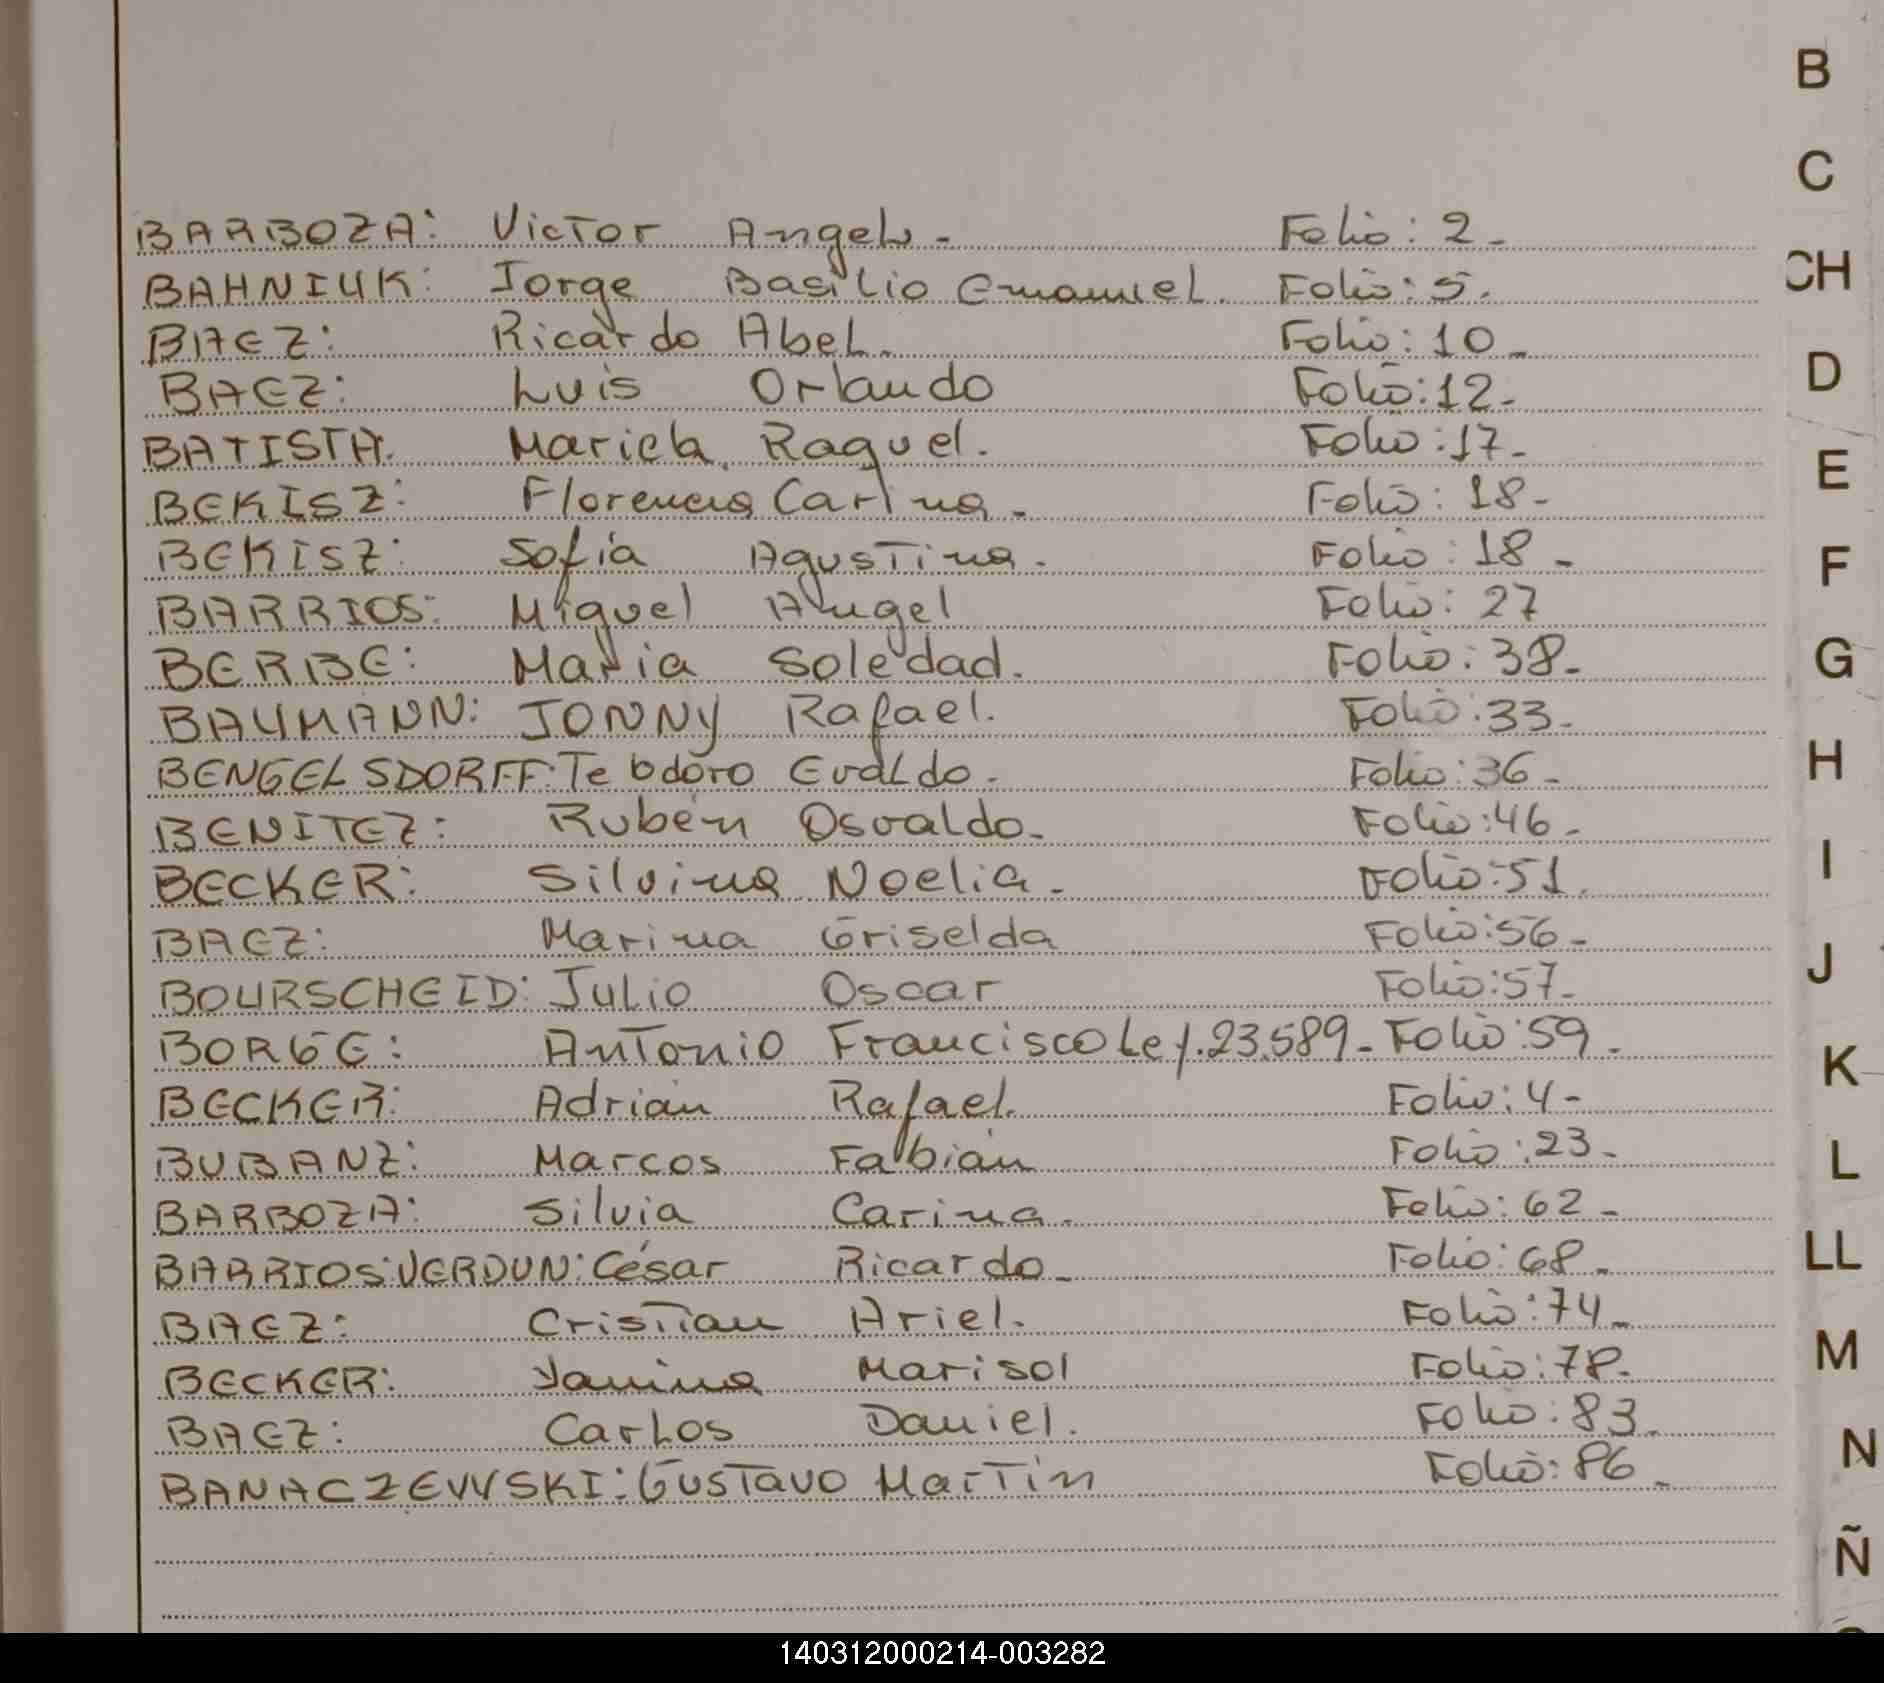 B
C
CH
D
E
F
G
H
I
J
K
L
LL
M
N
Ñ
BARBOZA: Victor Angelo. Folio: 2.
BAHNIUK: Jorge Basilio Emanuel. Folio: 5.
BAEZ: Ricardo Abel. Folio: 10.
BAEZ: Luis Orlando Folio: 12.
BATISTA. Mariela Raquel. Folio: 17.
BEKISZ: Florencia Carina. Folio: 18.
BEKISZ: Sofia Agustina. Folio: 18.
BARRIOS: Miguel Angel Folio: 27
BERBE: Maria Soledad. Folio: 38.
BAUMANN: JONNY Rafael. Folio: 33.
BENGELSDORFF: Teodoro Evaldo. Folio: 36.
BENITEZ: Rubén Osvaldo. Folio: 46.
BECKER: Silvina Noelia. Folio: 51.
BAEZ: Marina Griselda Folio: 56.
BOURSCHEID: Julio Oscar Folio: 57.
BORGE: Antonio Francisco Ley. 23.589. Folio: 59.
BECKER: Adrián Rafael. Folio: 4.
BUBANZ: Marcos Fabián Folio: 23.
BARBOZA: Silvia Carina. Folio: 62.
BARRIOS VERDUN: César Ricardo. Folio: 68.
BAEZ: Cristian Ariel. Folio: 74.
BECKER: Yanina Marisol Folio: 78.
BAEZ: Carlos Daniel. Folio: 83.
BANACZEWSKI: Gustavo Martín Folio: 86.
140312000214-003282